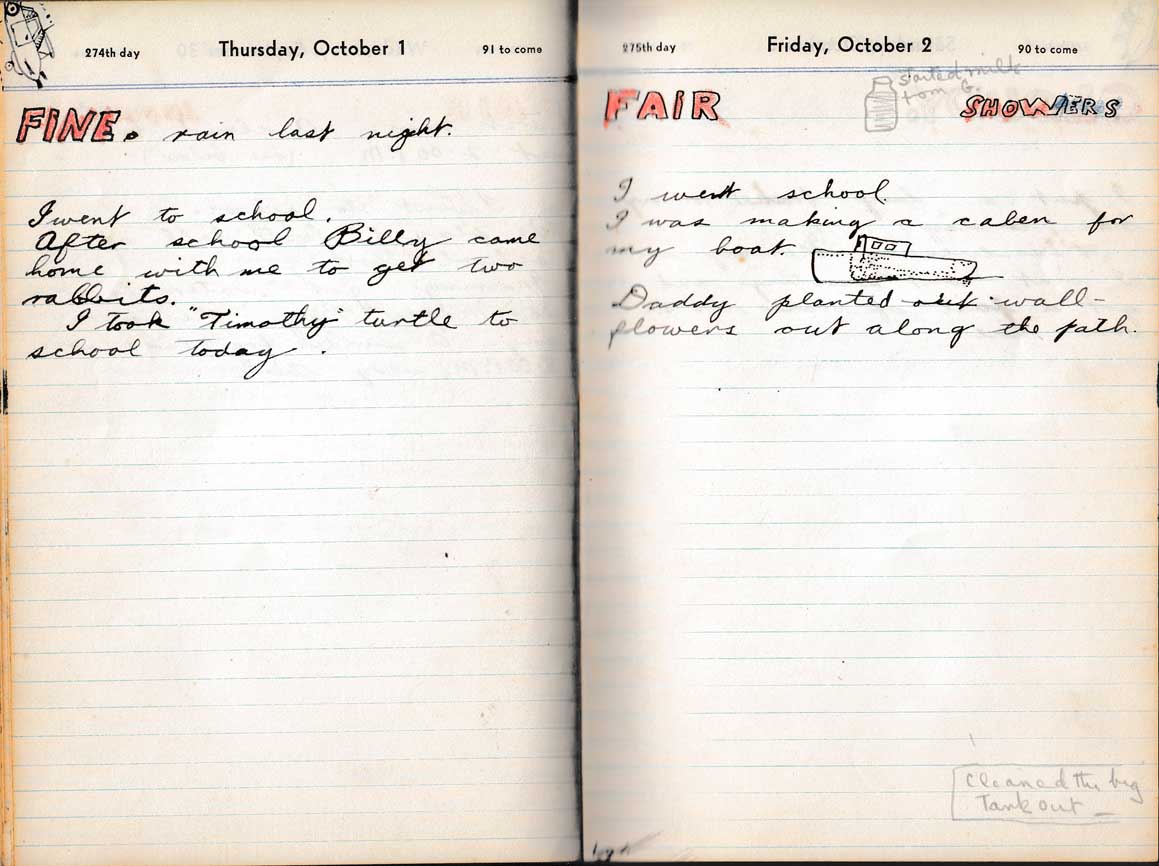 274th day Thursday, October 1 91 to come
FINE. rain last night.
I went to school.
After school Billy came
home with me to get two
rabbits.
I took "Timothy" turtle to
school today.
275th day Friday, October 2 90 to come
started milk
from G.
FAIR SHOWERS
I went school.
I was making a caben for
my boat.
Daddy planted out wall-
flowers out along the path.
Cleaned the big
Tank out